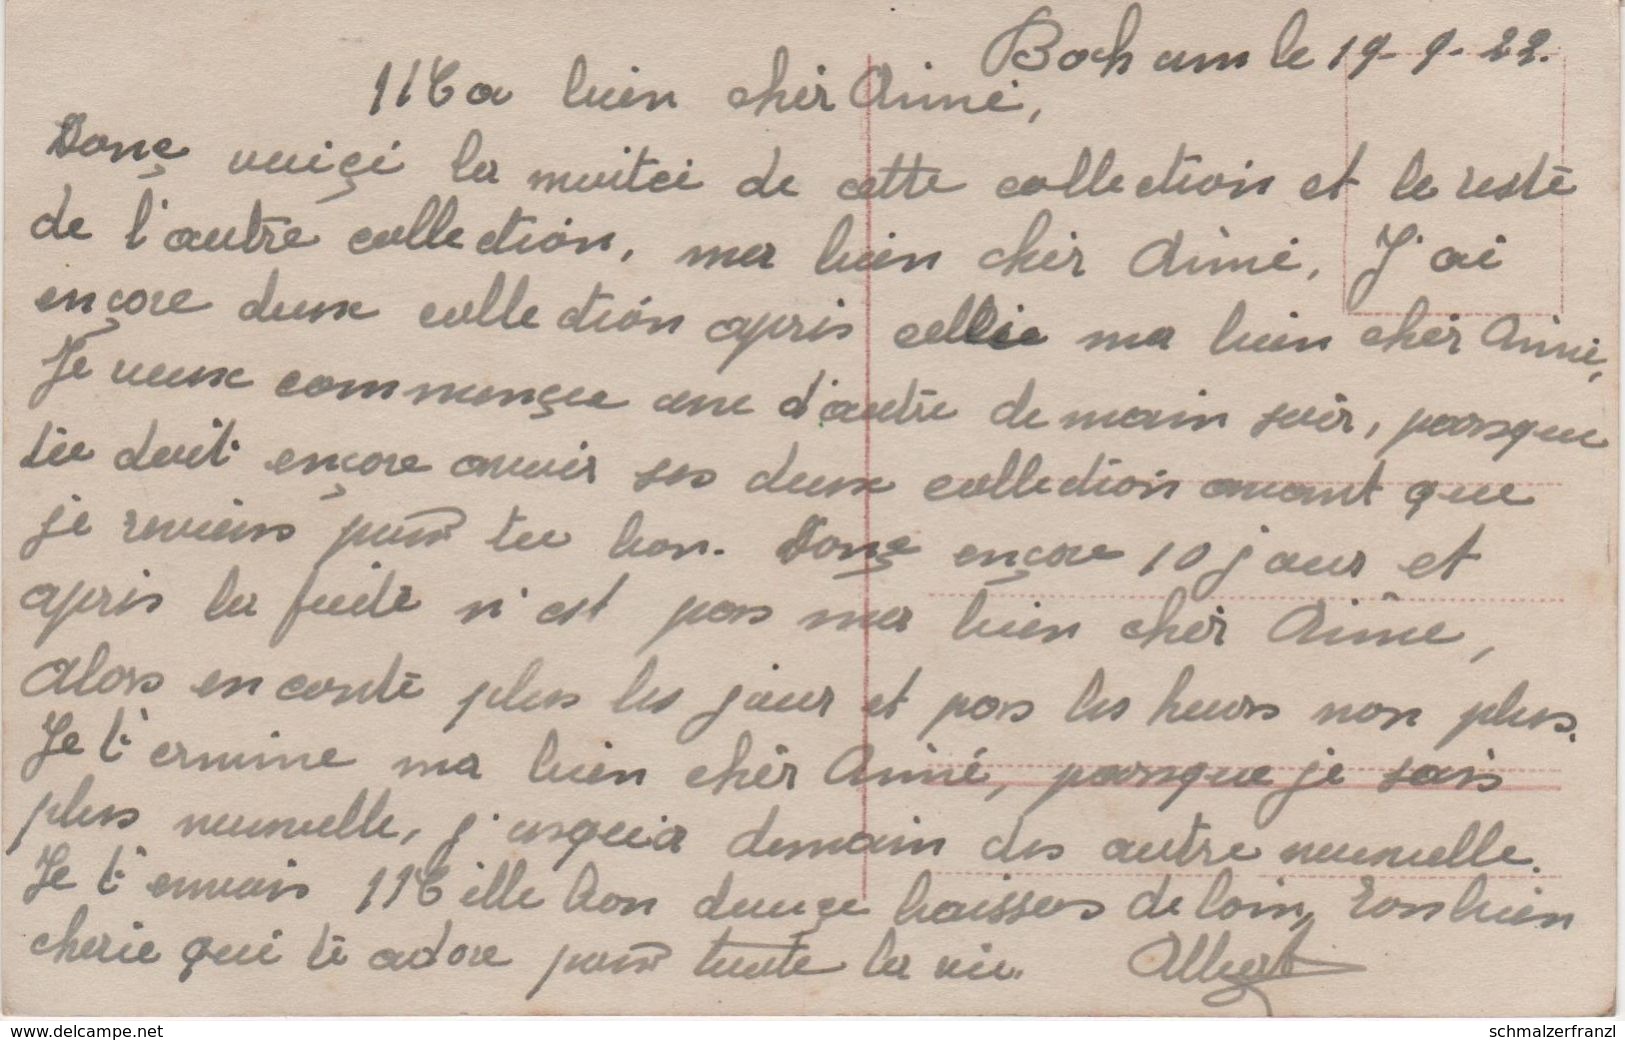 Bochum le 19-9-22.
Ma bien cher Aimé,
Donç vuiçi la moitei de cette collection et le reste
de l'autre collection, ma bien cher Aimé. J'ai
ençore deux collection apris cellie ma bien cher Aimé,
Je veux commençee une d'autre demain soir, parsque
tu doit ençore avoir ses deux collection avant que
je reviens pour tu bon. Donç ençore 10 jour et
apris la fuite n'est pas ma bien cher Aimée,
alors en conte plus les jour et pas les heurs non plus.
Je t'ermine ma bien cher Aimé, parsque je sais
plus nuvuelle, j'usqu'a demain des autre nuvuelle.
Je t'envais Mille bon douçe baissers de loin, Ton bien
cherie qui te adore pour tuute la vie. Albert
www.delcampe.net
schmalzerfranzl